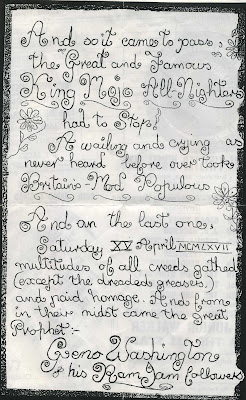 And so it came to pass,
the "Great and Famous"
King Mojo All-Nighters
had to Stop!
A wailing and crying as
never heard before over took
Britains Mod Populous
And on the last one,
Saturday XX April MCMLXVII
multitudes of all creeds gathered
(except the dreaded greasers,)
and paid homage. And from
in their midst came the Great
Prophet:-
Geno Washington
& his Ram Jam followers